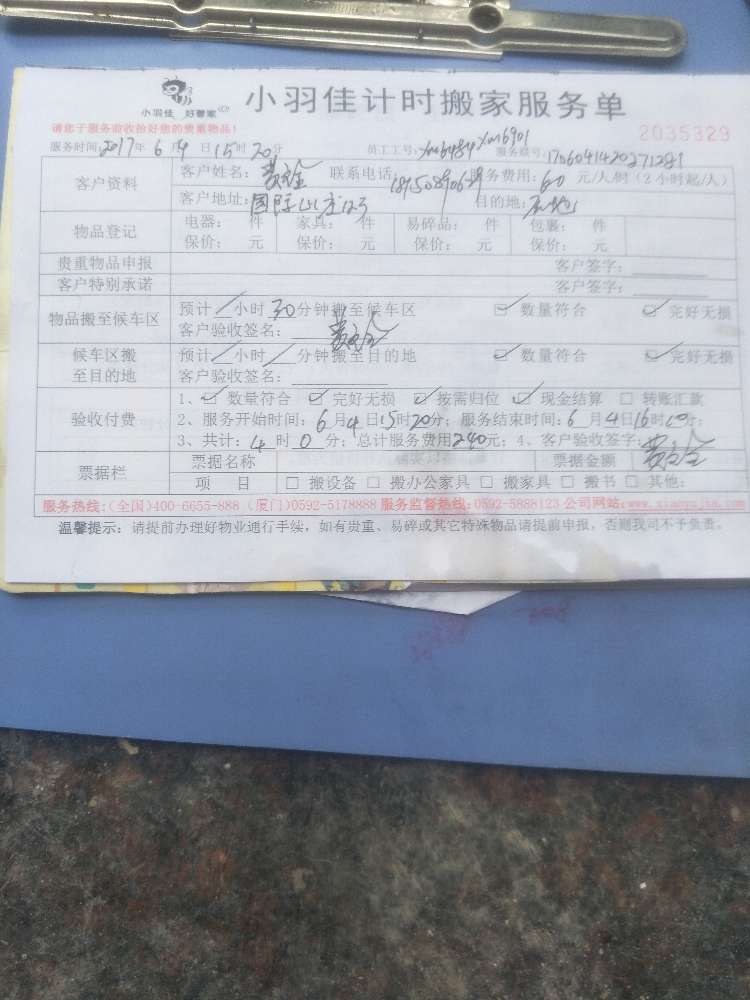 小羽佳 好管家
小羽佳计时搬家服务单
请您于服务前收拾好您的贵重物品!
2035329
服务时间: 2017年 6月 4日 15时 20分 员工工号: xm6484 xm6901 服务联号: 17060414202771281
客户资料
客户姓名: 联系电话: 服务费用: 60 元/人/时 (2小时起/人)
客户地址: 国际山庄123 目的地: 本地
物品登记
电器: 件 家具: 件 易碎品: 件 包裹: 件
保价: 元 保价: 元 保价: 元 保价: 元
贵重物品申报 客户签字:
客户特别承诺 客户签字:
物品搬至候车区
预计 / 小时 30分钟搬至候车区 ☑ 数量符合 ☑ 完好无损
客户验收签名:
候车区搬至目的地
预计 / 小时 / 分钟搬至目的地 ☑ 数量符合 ☑ 完好无损
客户验收签名:
验收付费
1、☑ 数量符合 ☑ 完好无损 ☑ 按需归位 ☑ 现金结算 □ 转账汇款
2、服务开始时间: 6月4日15时20分; 服务结束时间: 6月4日16时 分;
3、共计: 4时 0分; 总计服务费用240元; 4、客户验收签字:
票据栏
票据名称 票据金额
项 目 □ 搬设备 □ 搬办公家具 □ 搬家具 □ 搬书 □ 其他:
服务热线:(全国)400-6655-888 (厦门)0592-5178888 服务监督热线:0592-5888123 公司网站:www.xiaoyujia.com
温馨提示: 请提前办理好物业通行手续, 如有贵重、易碎或其它特殊物品请提前申报, 否则我司不予负责。